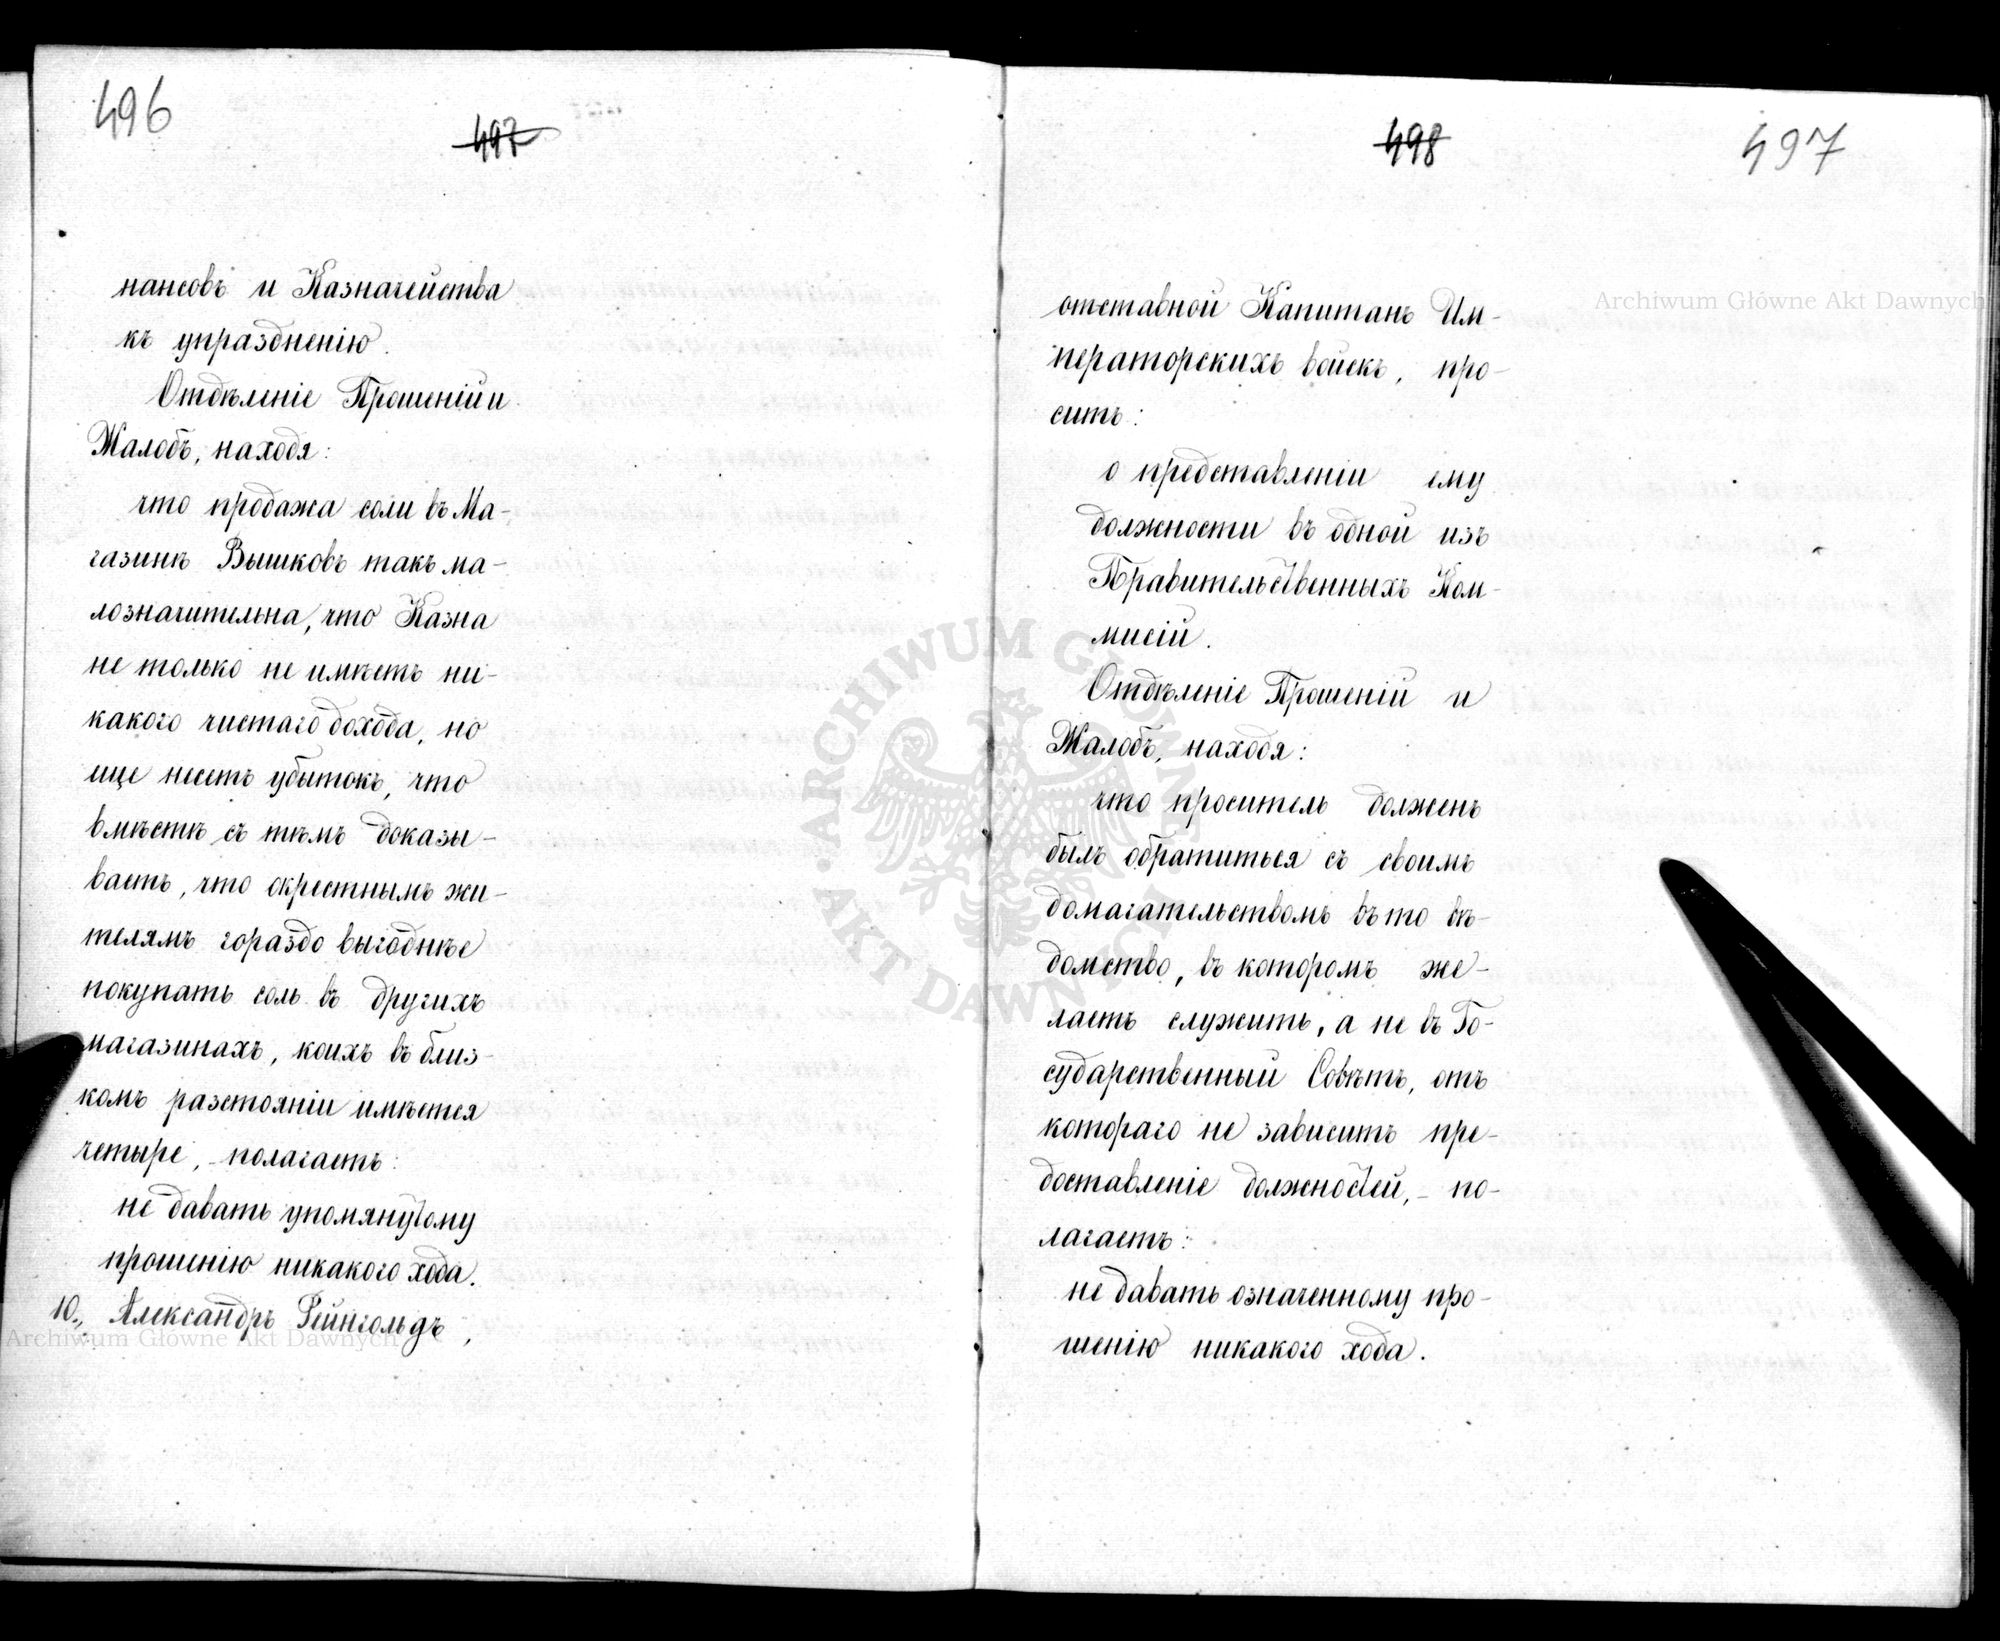 496
497
нансовъ и Казначейства
къ упраздненію.
Отдѣленіе Прошеній и
Жалобъ, находя:
что продажа соли въ Ма-
газинѣ Вышковъ такъ ма-
лозначительна, что Казна
не только не имѣетъ ни-
какого чистаго дохода, но
еще несетъ убытокъ, что
вмѣстѣ съ тѣмъ доказы-
ваетъ, что окрестнымъ жи-
телямъ гораздо выгоднѣе
покупать соль въ другихъ
магазинахъ, коихъ въ близ-
комъ разстояніи имѣется
четыре, - полагаетъ:
не давать упомянутому
прошенію никакого хода.
10., Александръ Рейнгольдъ,
Archiwum Główne Akt Dawnych
498
497
Archiwum Główne Akt Dawnych
отставной Капитанъ Им-
ператорскихъ войскъ, про-
ситъ:
о представленіи ему
должности въ одной изъ
Правительственныхъ Ком-
мисій.
Отдѣленіе Прошеній и
Жалобъ, находя:
что проситель долженъ
былъ обратиться съ своимъ
домагательствомъ въ то вѣ-
домство, въ которомъ же-
лаетъ служить, а не въ Го-
сударственный Совѣтъ, отъ
котораго не зависитъ пре-
доставленіе должностей, - по-
лагаетъ:
не давать означенному про-
шенію никакого хода.
ARCHIWUM GŁÓWNE AKT DAWNYCH